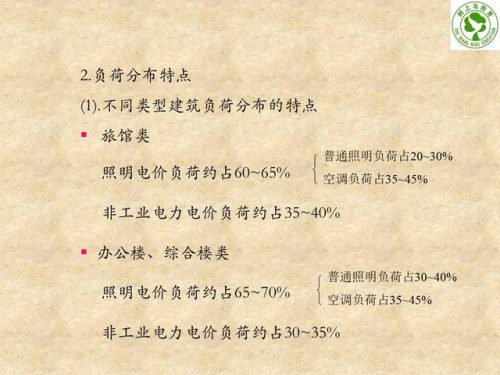 2.负荷分布特点
(1).不同类型建筑负荷分布的特点
旅馆类
照明电价负荷约占60~65%
普通照明负荷占20~30%
空调负荷占35~45%
非工业电力电价负荷约占35~40%
办公楼、综合楼类
照明电价负荷约占65~70%
普通照明负荷占30~40%
空调负荷占35~45%
非工业电力电价负荷约占30~35%